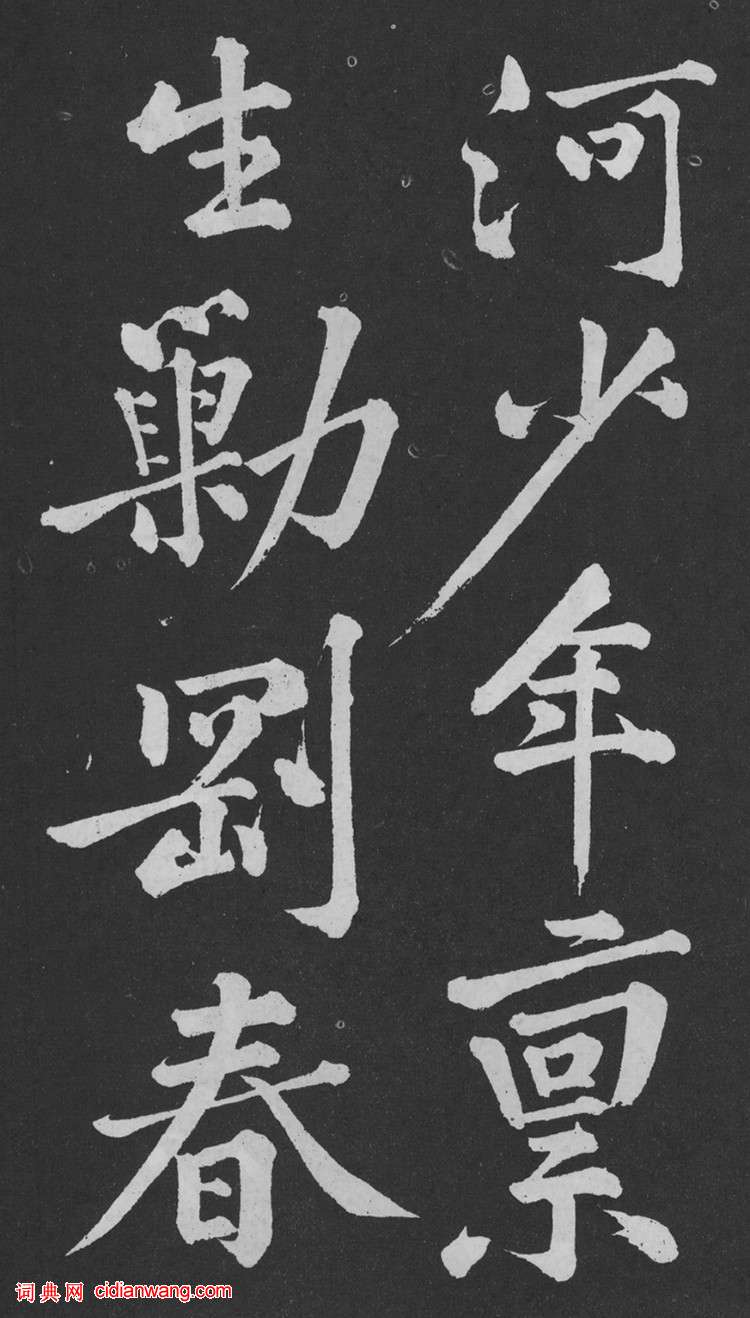 河少年禀
生勦剛春
词典网 cidianwang.com